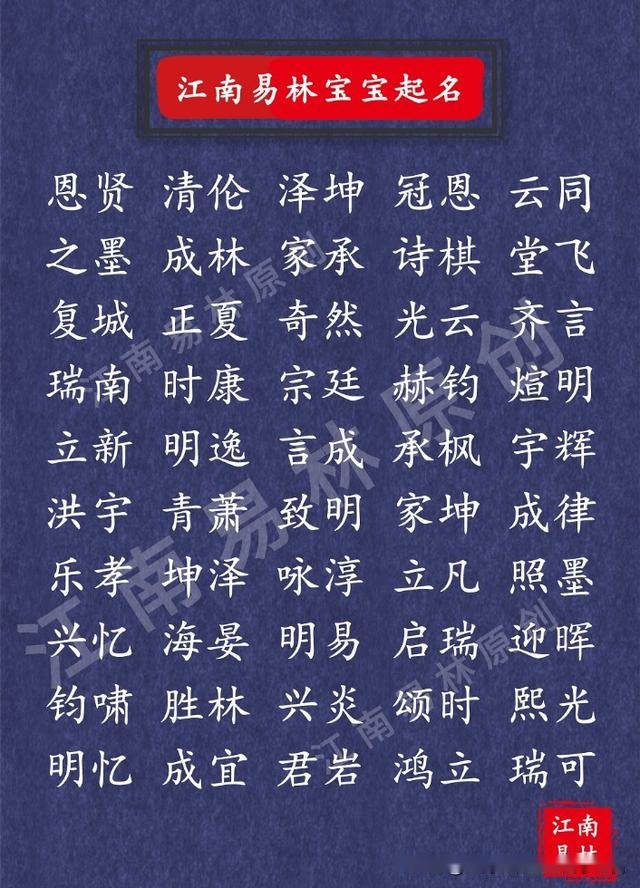 江南易林宝宝起名
恩贤 清伦 泽坤 冠恩 云同
之墨 成林 家承 诗棋 堂飞
复城 正夏 奇然 光云 齐言
瑞南 时康 宗廷 赫钧 煊明
立新 明逸 言成 承枫 宇辉
洪宇 青萧 致明 家坤 成律
乐孝 坤泽 咏淳 立凡 照墨
兴忆 海晏 明易 启瑞 迎晖
钧啸 胜林 兴炎 颂时 熙光
明忆 成宜 君岩 鸿立 瑞可
江南易林原创
江南易林原创
江南易林原创
江南
易林